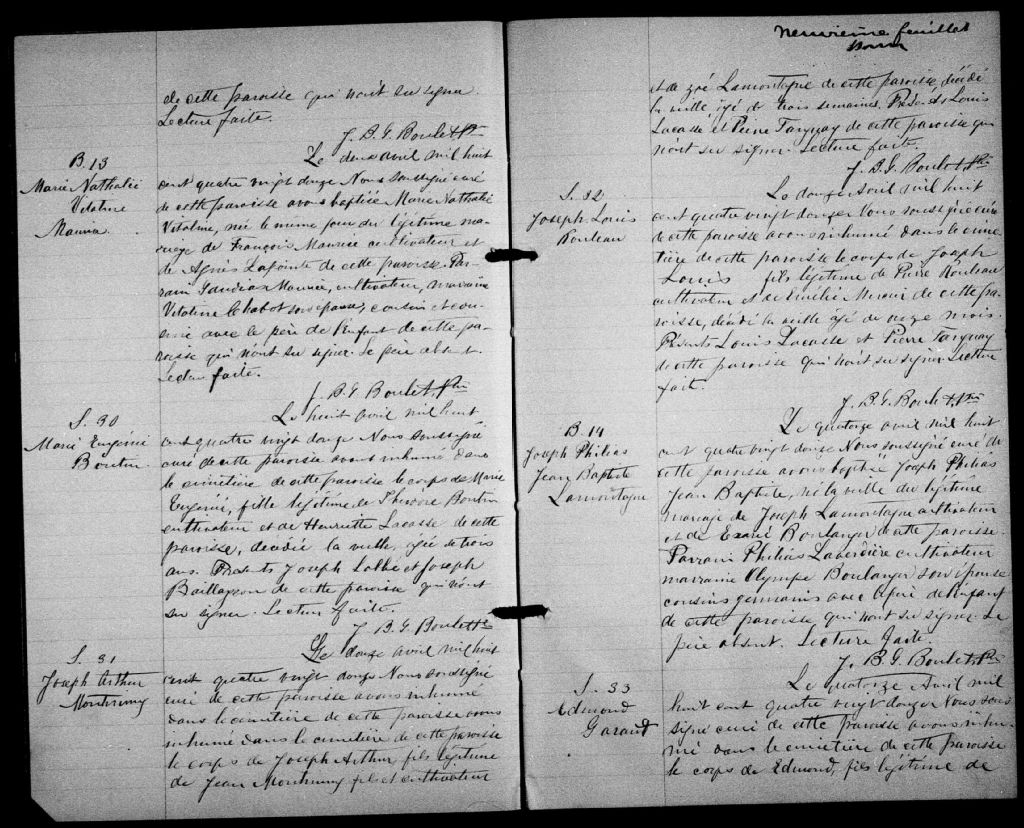 de cette paroisse qui n'ont su signer.
Lecture faite.
J. B. G. Boulet Ptr
B. 13
Marie Nathalie
Vitaline
Le deux avril mil huit
cent quatre vingt douze Nous soussigné curé
de cette paroisse avons baptisé Marie Nathalie
Vitaline, née le même jour du légitime ma-
riage de François cultivateur et
de Agnès Lapointe de cette paroisse. Par-
rain cultivateur, marraine
Vitaline Chabot son épouse, cousin et cou-
sine avec le père de l'enfant de cette pa-
roisse qui n'ont su signer. Le père absent.
Lecture faite.
J. B. G. Boulet, Ptr
S. 30
Marie Eugénie
Boutin
Le huit avril mil huit
cent quatre vingt douze Nous soussigné
curé de cette paroisse avons inhumé dans
le cimetière de cette paroisse le corps de Marie
Eugénie, fille légitime de Boutin
cultivateur et de Henriette Lacasse de cette
paroisse, décédée la veille, agée de trois
ans. Présents Joseph et Joseph
Baillargeon de cette paroisse qui n'ont
su signer. Lecture faite.
J. B. G. Boulet Ptr
S. 31
Joseph Arthur
Montminy
Le douze avril mil huit
cent quatre vingt douze Nous soussigné
curé de cette paroisse avons inhumé
dans le cimetière de cette paroisse avons
inhumé dans le cimetière de cette paroisse
le corps de Joseph Arthur fils légitime
de Jean Montminy fils et cultivateur
Neuvième feuillet
et de Zoé Lamontagne de cette paroisse, décédé
la veille agé de trois semaines. Présents Louis
Lacasse et Pierre Turgeon de cette paroisse qui
n'ont su signer. Lecture faite.
J. B. G. Boulet, Ptr
S. 32
Joseph Louis
Rouleau
Le douze Avril mil huit
cent quatre vingt douze, Nous soussigné curé
de cette paroisse avons inhumé dans le cime-
tière de cette paroisse le corps de Joseph
Louis fils légitime de Pierre Rouleau
cultivateur et de de cette pa-
roisse, décédé la veille agé de onze mois.
Présents Louis Lacasse et Pierre Turgeon
de cette paroisse qui n'ont su signer. Lecture
faite.
J. B. G. Boulet, Ptr
B. 14
Joseph Philias
Jean Baptiste
Lamontagne
Le quatorze avril mil huit
cent quatre vingt douze Nous soussigné curé de
cette paroisse avons baptisé Joseph Philias
Jean Baptiste, né la veille du légitime
mariage de Joseph Lamontagne cultivateur
et de Boulanger de cette paroisse.
Parrain Philias Laverdière cultivateur
marraine Olympe Boulanger son épouse
cousins germains avec le père de l'enfant
de cette paroisse qui n'ont su signer. Le
père absent. Lecture faite.
J. B. G. Boulet, Ptr
S. 33
Edmond
Garand
Le quatorze Avril mil
huit cent quatre vingt douze Nous sous-
signé curé de cette paroisse avons inhu-
mé dans le cimetière de cette paroisse
le corps de Edmond, fils légitime de